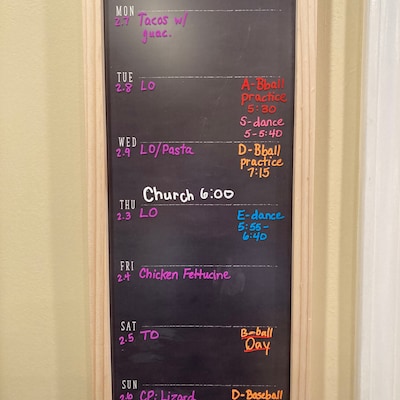 MON
2.7 Tacos w/
guac.
TUE
2.8 LO
A-Bball
practice
5:30
S-dance
5-5:40
WED
2.9 LO/Pasta
D-Bball
practice
7:15
Church 6:00
THU
2.3 LO
E-dance
5:55-
6:40
FRI
2.4 Chicken Fettucine
SAT
2.5 TO
B-ball
Day
SUN
2.6 CP: Lizard
D-Baseball